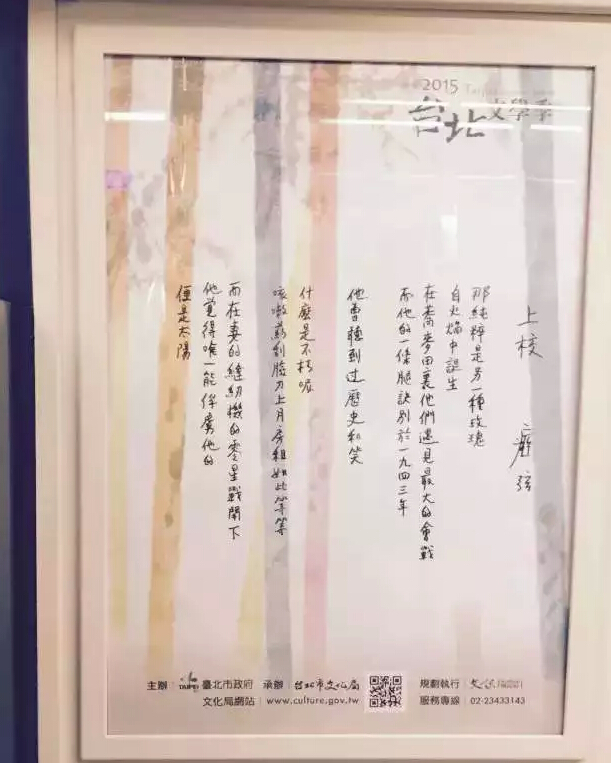 2015
台北文學季
上校 瘂弦
那純粹是另一種玫瑰
自火焰中誕生
在蕎麥田裏他們遇見最大的會戰
而他的一條腿訣別於一九四三年
他曾聽到过歷史和笑
什麼是不朽呢
咳嗽藥刮臉刀上月房租如此等等
而在妻的縫紉機的零星戰鬥下
他覺得唯一能俘虜他的
便是太陽
主辦 TAIPEI 臺北市政府 承辦 台北市文化局 規劃執行
文化局網站 www.culture.gov.tw 服務專線 02-23433143